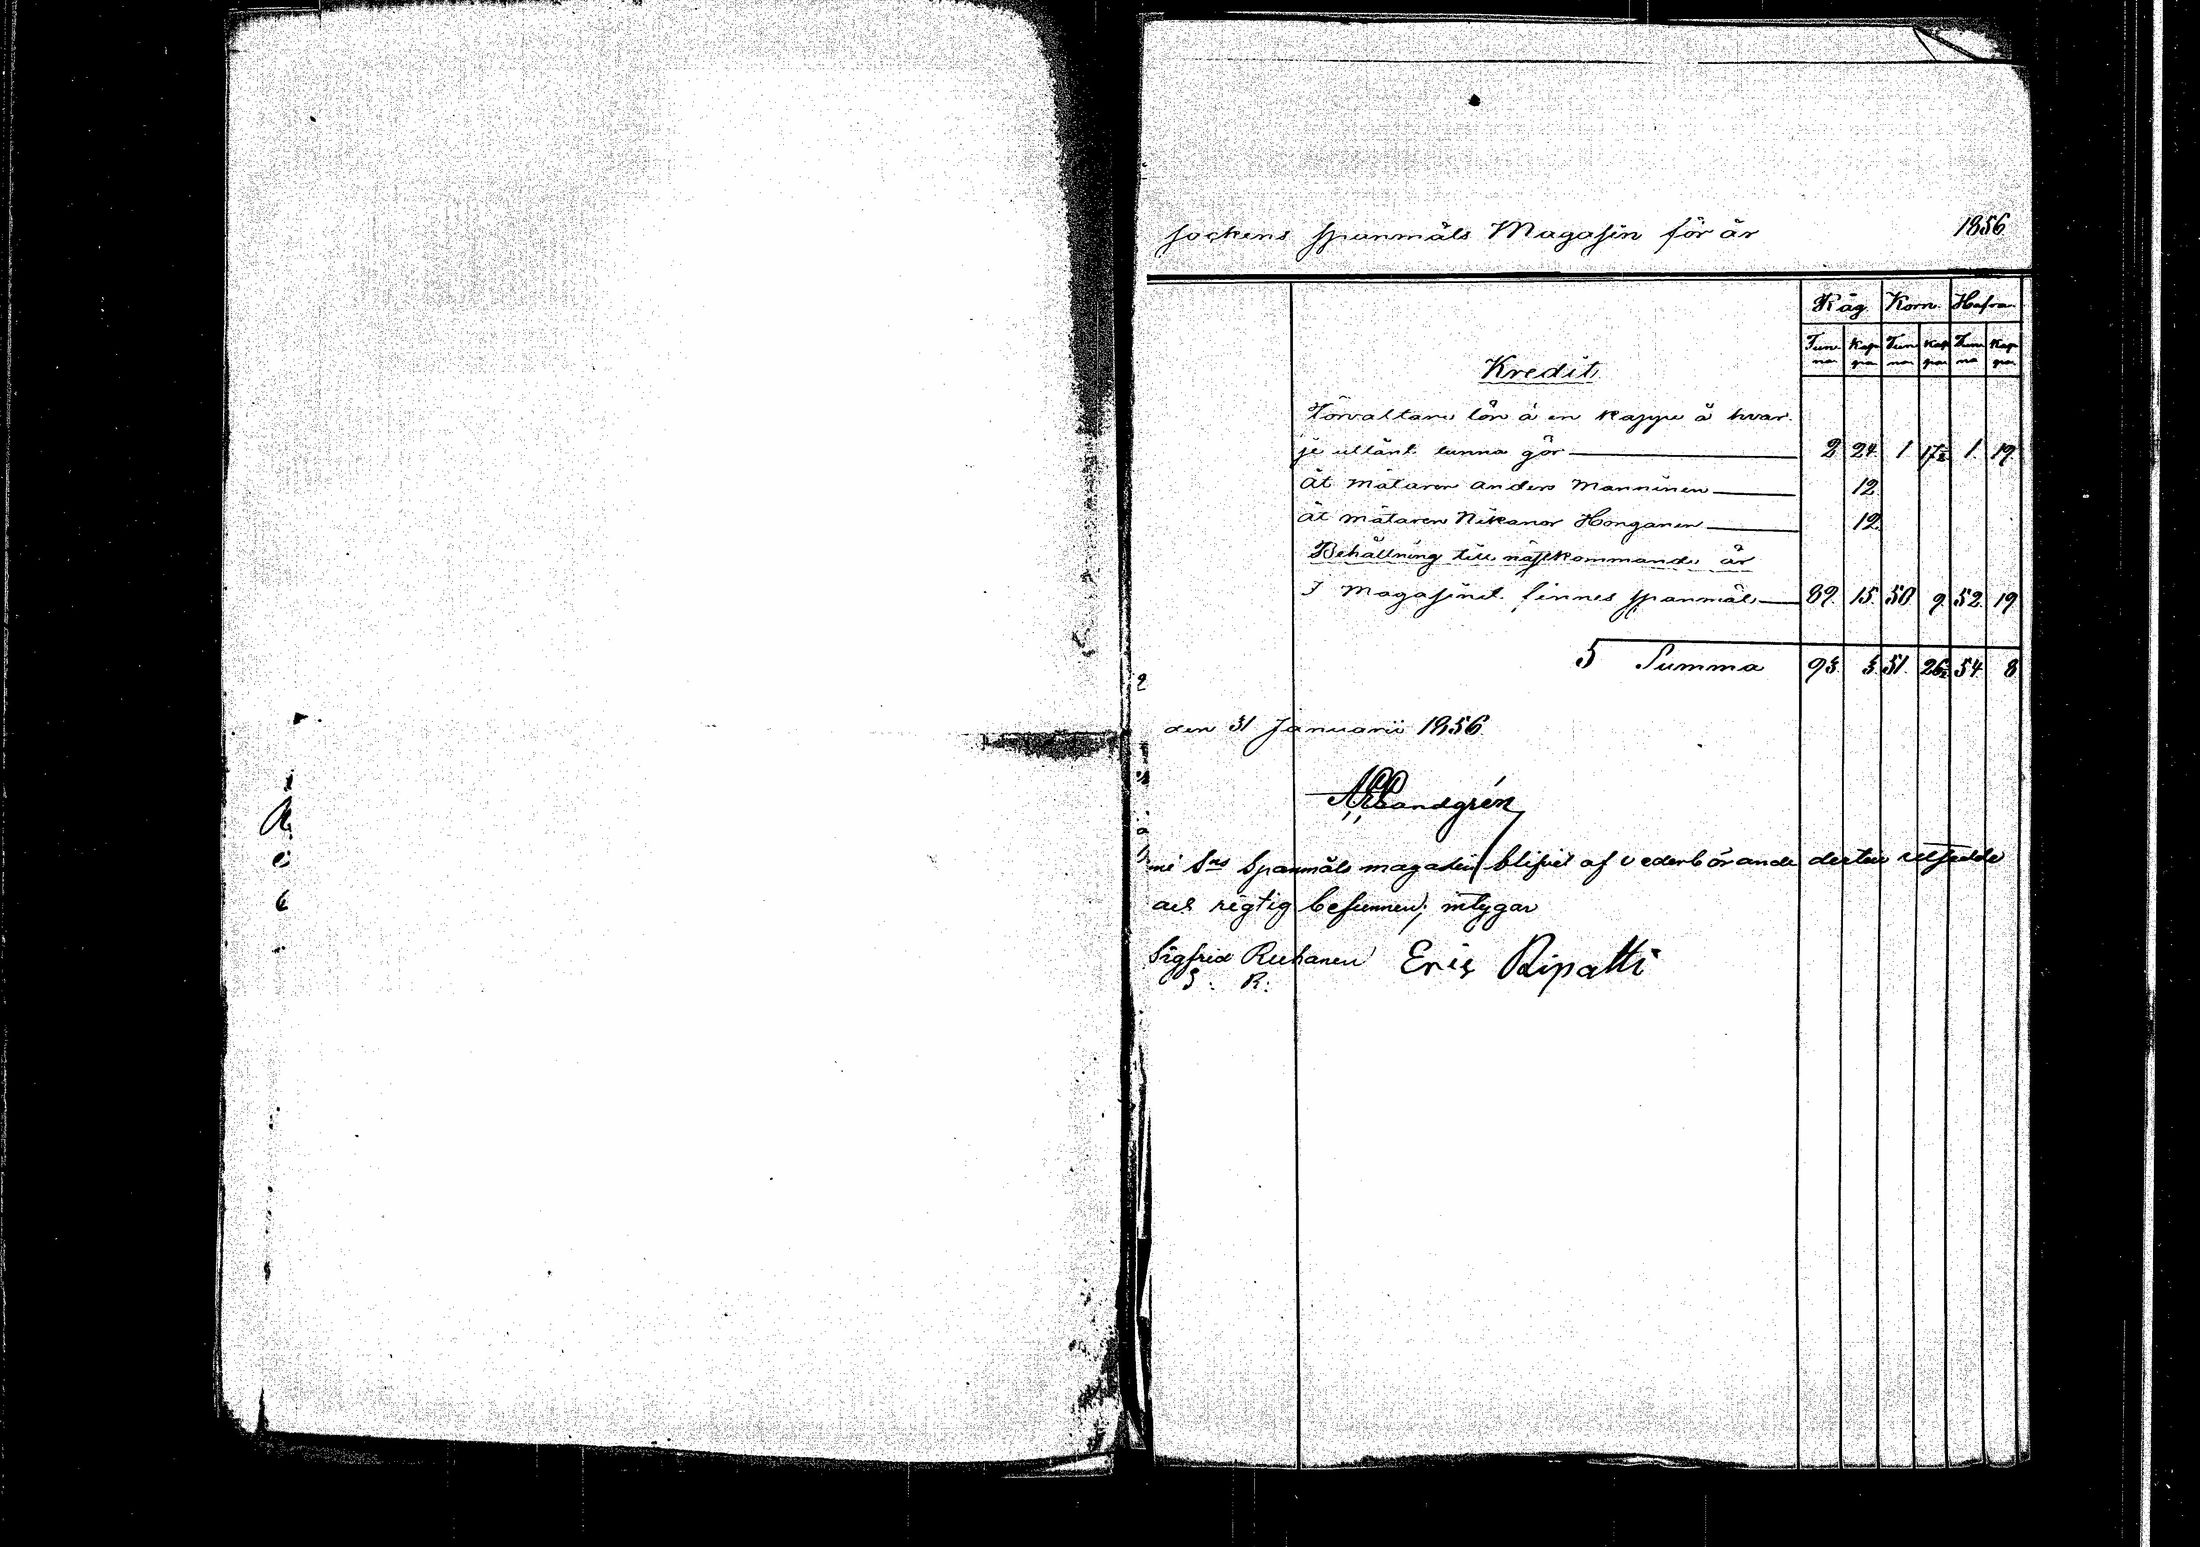 Sockens Spanmåls Magasin för år 1856
Råg Korn Hafra
Tunna Kappa Tunna Kappa Tunna Kappa
Kredit
Förvaltare lön á en kappe å hvar
je utlånt tunna gör 2 24 1 17½ 1 19
åt mätaren Anders Manninen 12
åt mätaren Nikanor Honganen 12
Behållning till nästkommande år
I Magasinet finnes spanmål 89 15 50 9 52 19
Summa 93 3 51 26½ 54 8
den 31 Januarii 1856
Sandgrén
Sns Spanmåls magasin blifvit af vederbörande dertill utsedde
rigtig befunnen; intygar
Sigfrid Ruhanen Eric Ripatti
S. R.